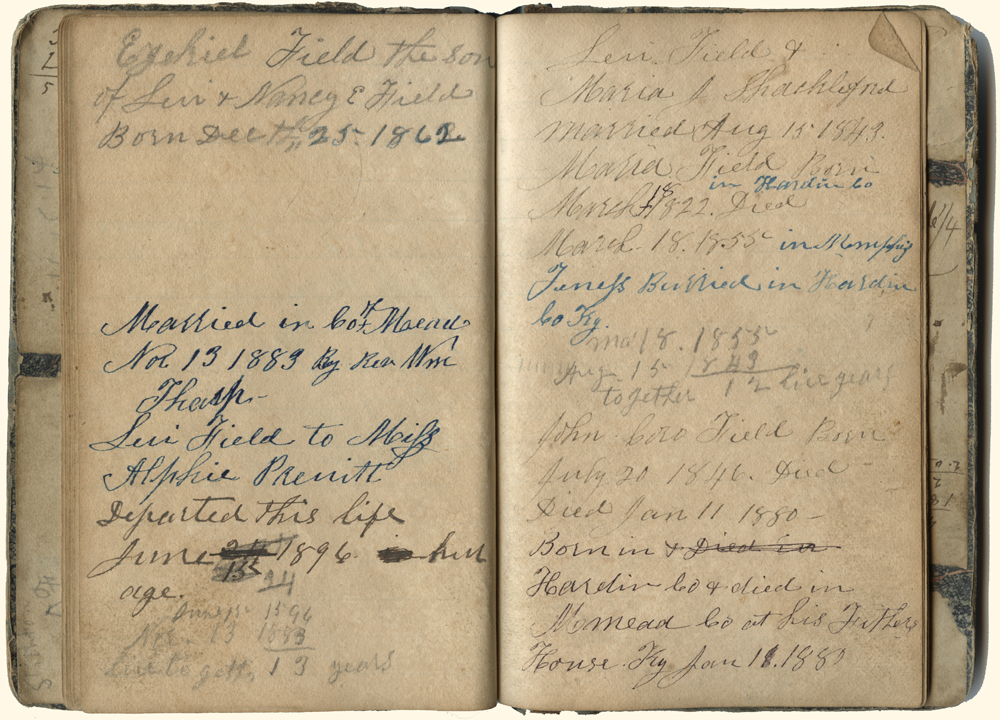 Ezekiel Field the son
of Levi & Nancy E Field
Born Dec th 25 1862
Married in Co of Mead
Nov 13 1883 By Rev Wm
Tharp -
Levi Field to Miss
Alphie Prewitt
Departed this life
June 15 1896. her
age. 24
June 15 1896
Nov. 13 1883
live to geth, 13 years
Levi Field &
Maria J Shacklford
Married Aug 15 1843.
Maria Field Born
in Hardin Co
March 18 1822. Died
March. 18. 1855 in Memphis
Teness Burried in Hardin
Co Ky.
mar 18. 1855
Aug 15 1843
12 live years
together
John Field Born
July 20 1846. Died -
Died Jan 11 1880 -
Born in & Died in
Hardin Co & died in
Mmead Co at his Fathers
House. Ky Jan 11. 1880
6/4